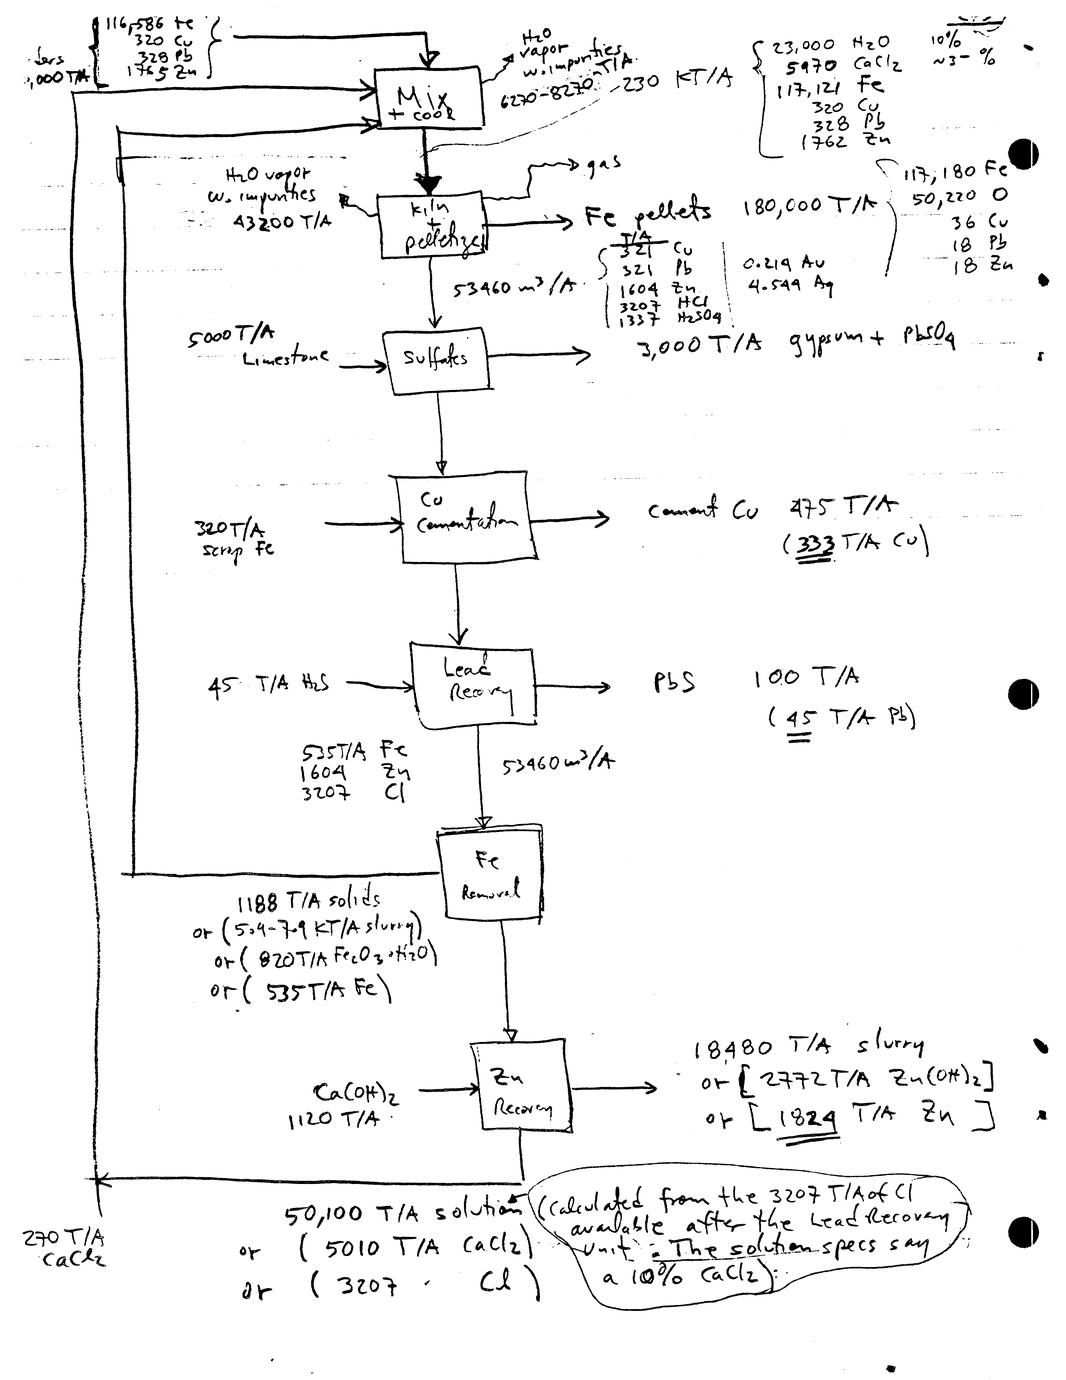 116,586 Fe
320 Cu
328 Pb
1765 Zn
,000 T/A
H2O
vapor
w. impurities
6270-8270 T/A
Mix
+ cool
230 KT/A
23,000 H2O 10%
5970 CaCl2 ~3- %
117,121 Fe
320 Cu
328 Pb
1762 Zn
H2O vapor
w. impurities
43200 T/A
gas
kiln
+
pelletize
Fe pellets 180,000 T/A
117,180 Fe
50,220 O
36 Cu
18 Pb
18 Zn
53460 m3/A
T/A
321 Cu
321 Pb
1604 Zn
3207 HCl
1337 H2SO4
0.214 Au
4.544 Ag
5000 T/A
Limestone
Sulfates
3,000 T/A gypsum + PbSO4
320 T/A
scrap Fe
Cu
Cementation
cement Cu 475 T/A
(333 T/A Cu)
45 T/A H2S
Lead
Recovery
PbS 100 T/A
(45 T/A Pb)
535 T/A Fe
1604 Zn
3207 Cl
53460 m3/A
Fe
Removal
1188 T/A solids
or (5.4-7.9 KT/A slurry)
or (820 T/A Fe2O3·H2O)
or (535 T/A Fe)
Ca(OH)2
1120 T/A
Zn
Recovery
18480 T/A slurry
or [2772 T/A Zn(OH)2]
or [1824 T/A Zn]
270 T/A
CaCl2
50,100 T/A solution
or (5010 T/A CaCl2)
or (3207 · Cl)
(Calculated from the 3207 T/A of Cl
available after the Lead Recovery
unit. The solution specs say
a 10% CaCl2)